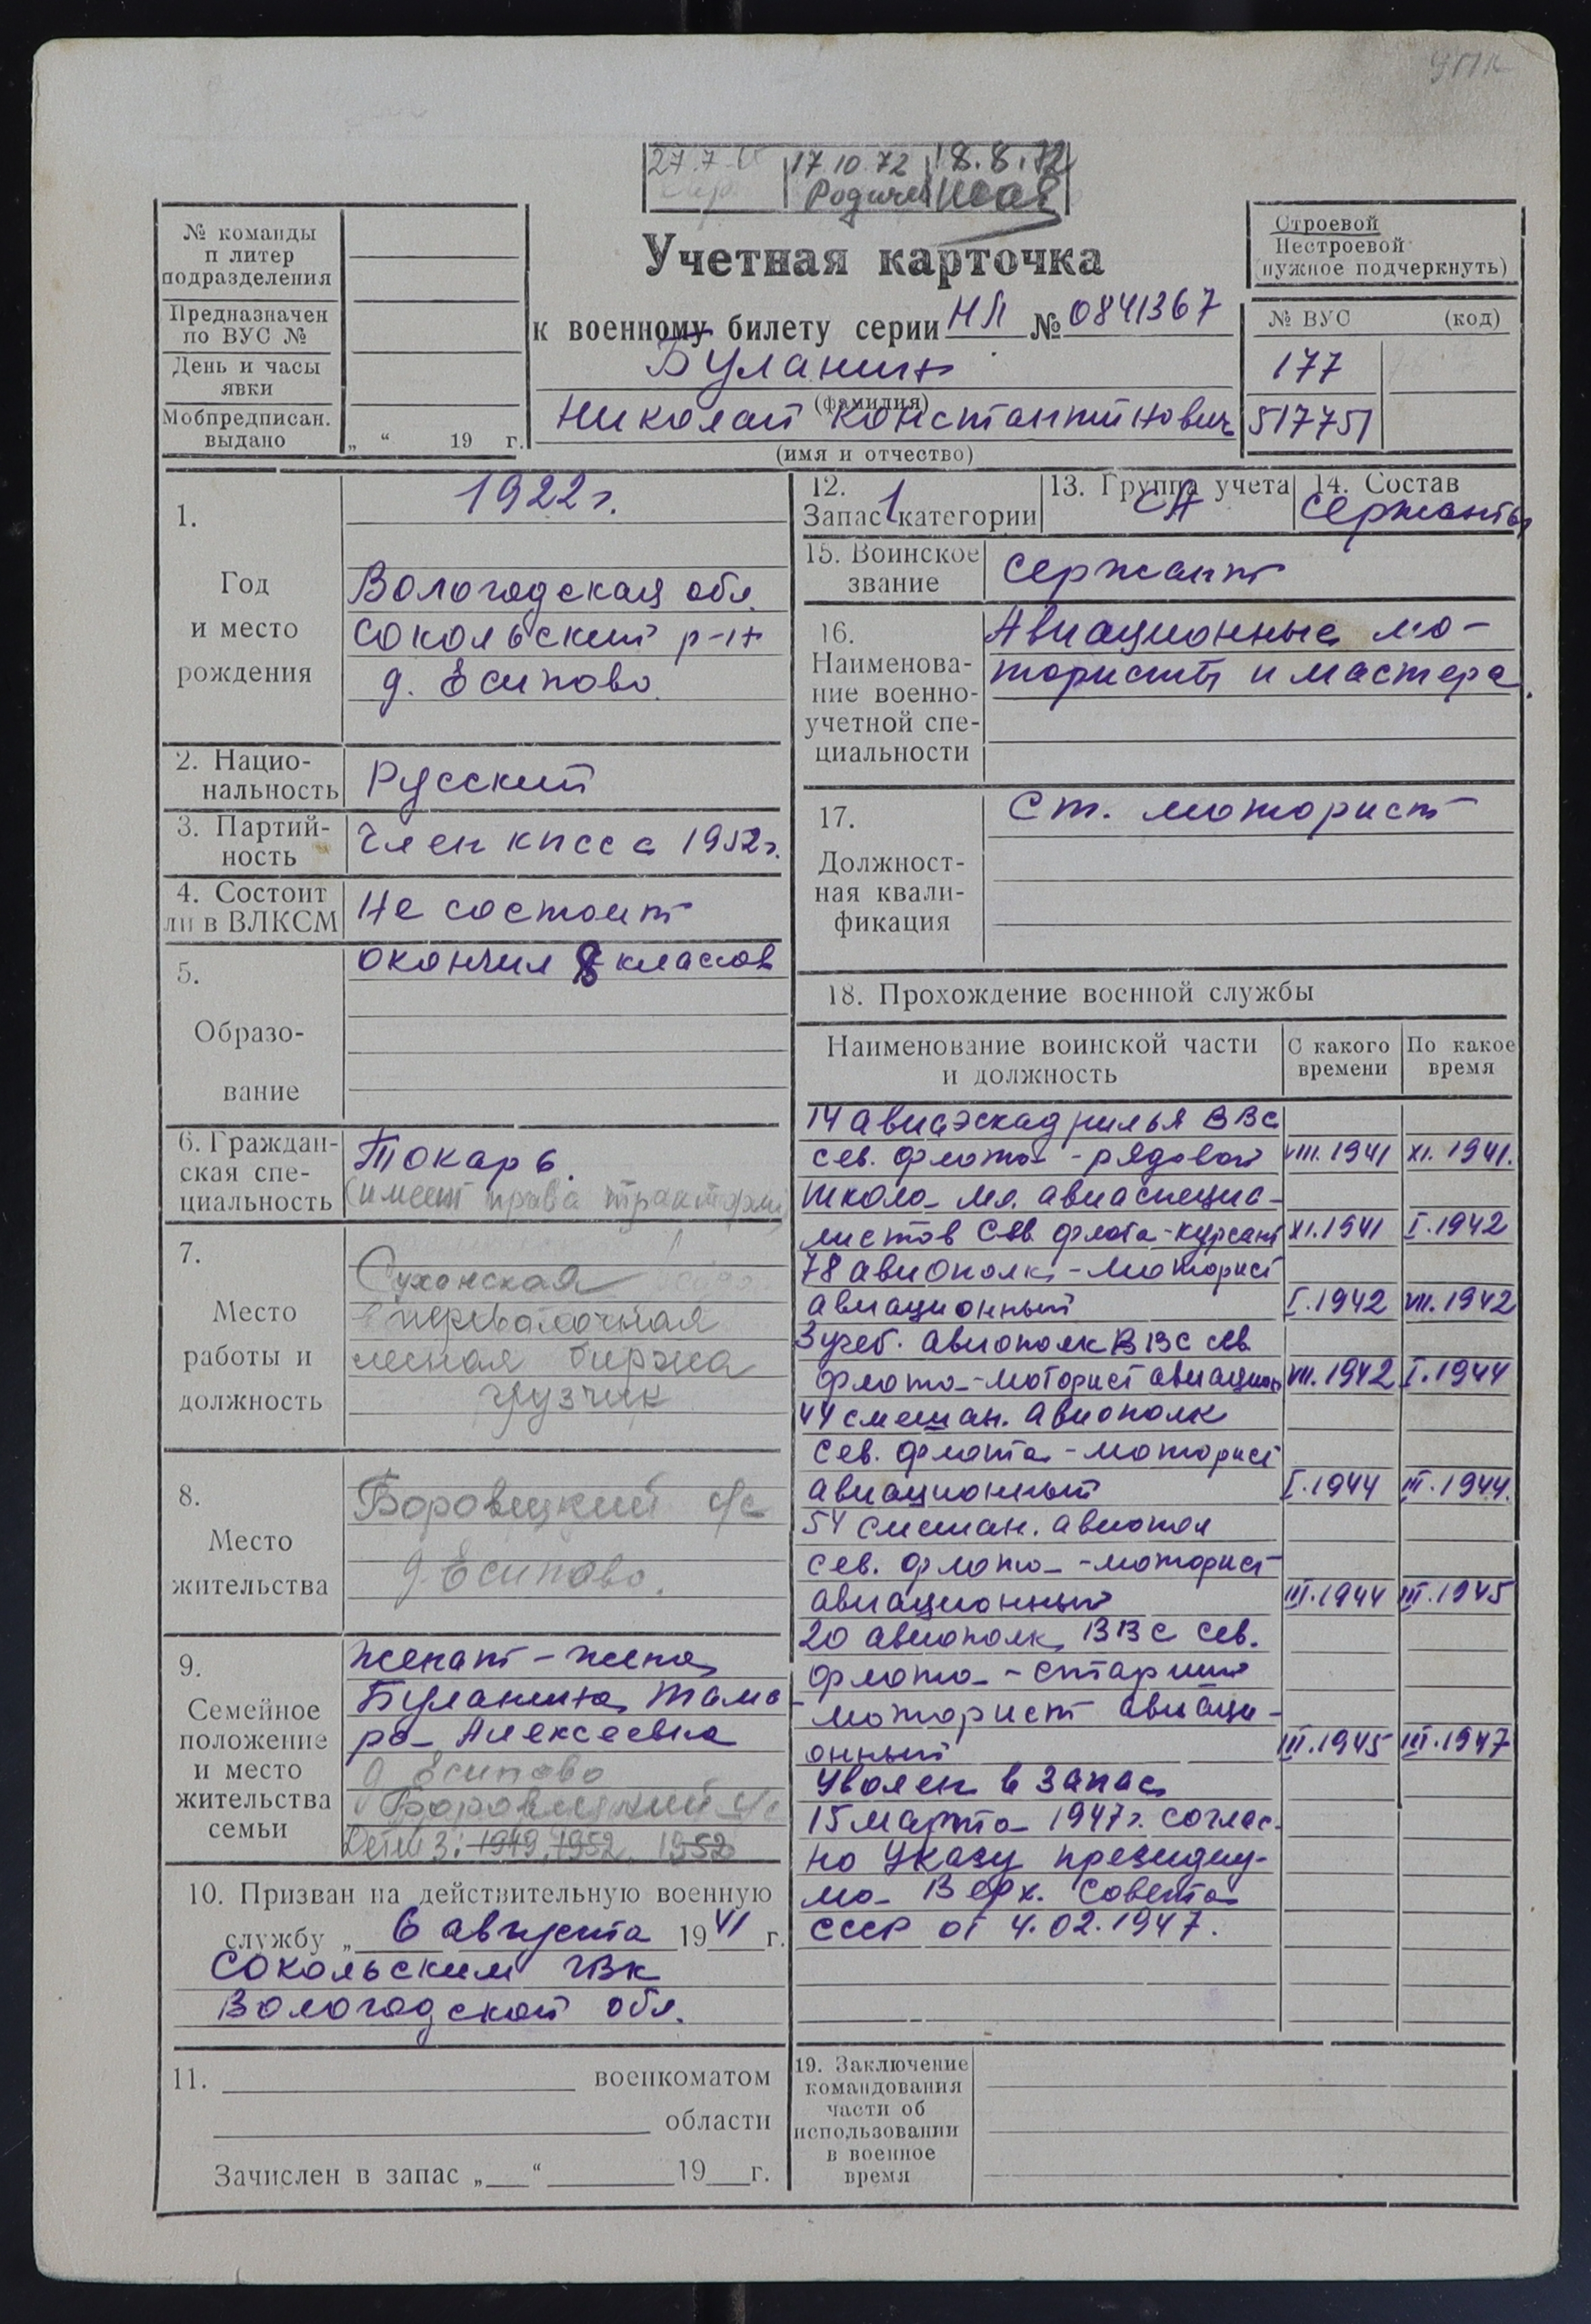 УПК
27.7 17 10 72 18.8.72
Учетная карточка
к военному билету серии НЛ № 0841367
Буланин
(фамилия)
Николай Константинович
(имя и отчество)
№ команды
п литер
подразделения
Предназначен
по ВУС №
День и часы
явки
Мобпредписан.
выдано „ “ 19 г.
Строевой
Нестроевой
(нужное подчеркнуть)
№ ВУС (код)
177
517751
1.
Год
и место
рождения
1922 г.
Вологодская обл.
Сокольский р-н
д. Есипово.
2. Нацио-
нальность
Русский
3. Партий-
ность
Член КПСС с 1952 г.
4. Состоит
ли в ВЛКСМ
Не состоит
5.
Образо-
вание
окончил 8 классов
6. Граждан-
ская спе-
циальность
Токарь.
(имеет права тракториста)
7.
Место
работы и
должность
Сухонская
перевалочная
лесная биржа
грузчик
8.
Место
жительства
Боровецкий с/с
д. Есипово.
9.
Семейное
положение
и место
жительства
семьи
женат - жена
Буланина Тама
ра Алексеевна
д Есипово
Боровецкий с/с
Дети 3: 1949, 1952. 1952
10. Призван на действительную военную
службу „ 6 августа 1941 г.
Сокольским ГВК
Вологодской обл.
11. военкоматом
области
Зачислен в запас „ “ 19 г.
12.
Запас 1 категории
13. Группа учета
СА
14. Состав
Сержанты
15. Воинское
звание
Сержант
16.
Наименова-
ние военно-
учетной спе-
циальности
Авиационные мо-
тористы и мастера.
17.
Должност-
ная квали-
фикация
Ст. моторист
18. Прохождение военной службы
Наименование воинской части
и должность
С какого
времени
По какое
время
14 авиаэскадрилья ВВС
Сев. флота - рядовой VIII.1941 XI.1941.
Школа мл. авиаспециа-
листов Сев. флота - курсант XI.1941 I.1942
78 авиополк - моторист
авиационный I.1942 VII.1942
3 учеб. авиополк ВВС Сев.
флота - моторист авиацион VII.1942 I.1944
44 смешан. авиополк
Сев. флота - моторист
авиационный I.1944 III.1944.
54 смешан. авиопол
Сев. флота - моторист
авиационный III.1944 III.1945
20 авиополк ВВС Сев.
флота - старший
моторист авиаци-
онный III.1945 III.1947
Уволен в запас
15 марта 1947 г. соглас-
но Указу президиу-
ма Верх. Совета
СССР от 4.02.1947.
19. Заключение
командования
части об
использовании
в военное
время